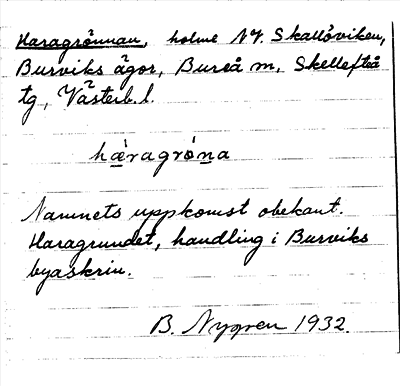 Haragrönnan, holme NV. Skallöviken,
Burviks ägor, Bureå sn, Skellefteå
tg, Västerb. l.
hæ̀ragrǿna
Namnets uppkomst obekant.
Haragrundet, handling i Burviks
byaskrin.
B. Nygren 1932.